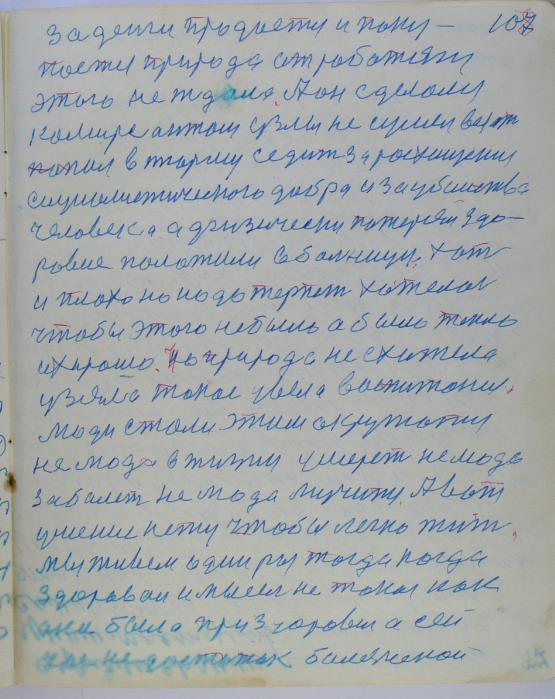 107
за денги продвету и поку-
поети природа отработати
этого не ждала. А он сделался
не сумел вот он
попал в тюрму седит за росхищения
социалистического добра и за убииства
человека а физически потерял здо-
ровие положили в болницу. хот
и плохо но надо терпет хотелос
чтобы этого небыло а было тепло
и хорошо. Но природа не схотела
узяла такое увела воспитания.
люди стали этим окружатии
не мода в жизни умерет не мода
заболет не мода мучитц. А вот
умение нету чтобы легко жит.
мы живем один раз тогда когда
здороваи и мысел не такая как
она была при здоровии а сей
час не достаток болезненой